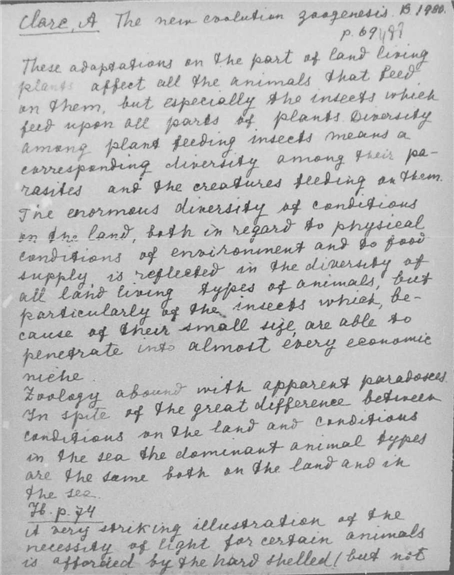 Clarc, A The new evolution zoogenesis. B 1980.
p. 69
These adaptations on the part of land living
plants affect all the animals that feed
on them, but especially the insects which
feed upon all parts of plants. Diversity
among plant feeding insects means a
corresponding diversity among their pa-
rasites and the creatures feeding on them.
The enormous diversity of conditions
on the land, both in regard to physical
conditions of environment and to food
supply is reflected in the diversity of
all land living types of animals, but
particularly of the insects which, be-
cause of their small size, are able to
penetrate into almost every economic
niche.
Zoology abound with apparent paradoxes.
In spite of the great difference between
conditions on the land and conditions
in the sea the dominant animal types
are the same both on the land and in
the sea.
Ib. p. 74
A very striking illustration of the
necessity of light for certain animals
is afforded by the hard shelled (but not